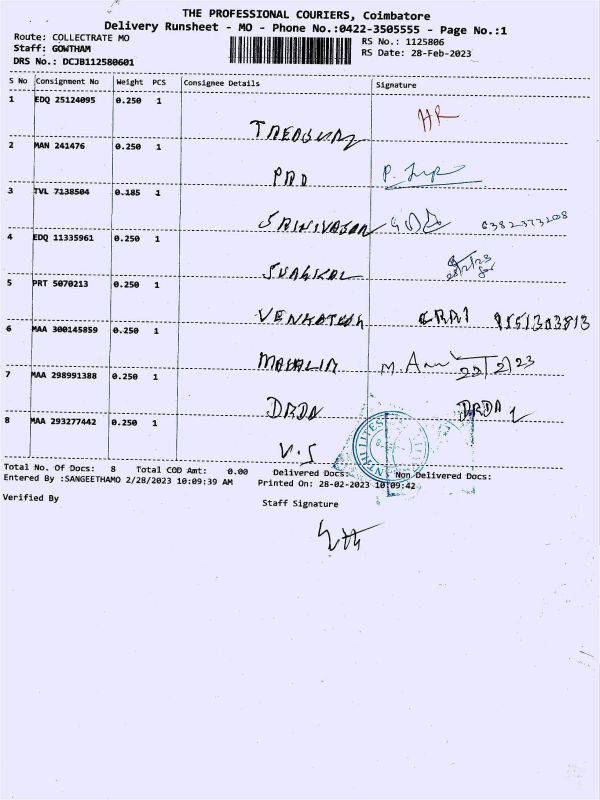 THE PROFESSIONAL COURIERS, Coimbatore
Delivery Runsheet - MO - Phone No.:0422-3505555 - Page No.:1
Route: COLLECTRATE MO
RS No.: 1125806
Staff: GOWTHAM
RS Date: 28-Feb-2023
DRS No.: DCJB112580601
S No Consignment No Weight PCS Consignee Details Signature
1 EDQ 25124095 0.250 1
TREASURY HR
2 MAN 241476 0.250 1
PRD P.
3 TVL 7138504 0.185 1
SRINIVASAN 6382373208
4 EDQ 11335961 0.250 1
28/2/23
5 PRT 5070213 0.250 1
VENKATESH
6 MAA 300145859 0.250 1
MAHALIR M. 28/2/23
7 MAA 298991388 0.250 1
DRDA DRDA
8 MAA 293277442 0.250 1
V.S
Total No. Of Docs: 8 Total COD Amt: 0.00 Delivered Docs: Non Delivered Docs:
Entered By :SANGEETHAMO 2/28/2023 10:09:39 AM Printed On: 28-02-2023 10:09:42
Verified By
Staff Signature